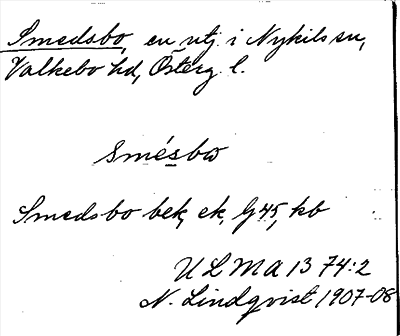 Smedsbo, en utj. i Nykils sn,
Valkebo hd, Österg. l.
Smésbω
Smedsbo bek, ek. G45, kb
ULMA 13 74:2
N. Lindqvist 1907-08